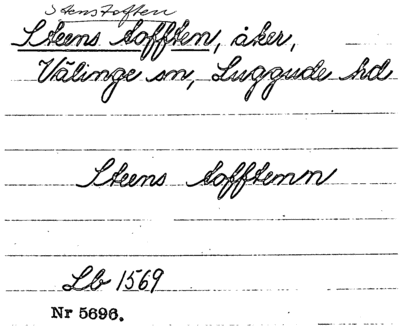 Stenstoften
Steens tofften, åker,
Välinge sn, Luggude hd
Steens tofftenn
Lb 1569
Nr 5696.